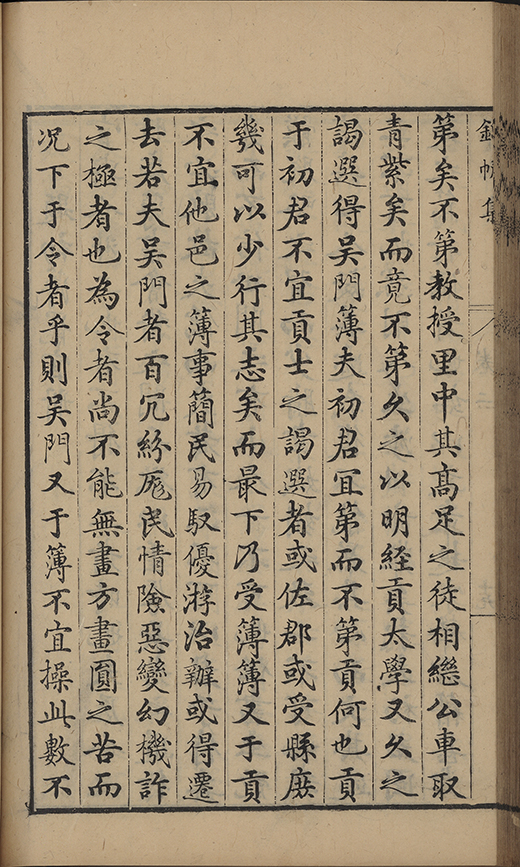 錦帆集
第矣不第教授里中其高足之徒相繼公車取
青紫矣而竟不第久之以明經貢太學又久之
謁選得吳門簿夫初君宜第而不第貢何也貢
于初君不宜貢士之謁選者或佐郡或受縣庻
幾可以少行其志矣而最下乃受簿簿又于貢
不宜他邑之簿事簡民易馭優游治辦或得遷
去若夫吳門者百冗紛厖民情險惡變幻機詐
之極者也為令者尚不能無畫方畫圓之苦而
况下于令者乎則吳門又于簿不宜操此數不